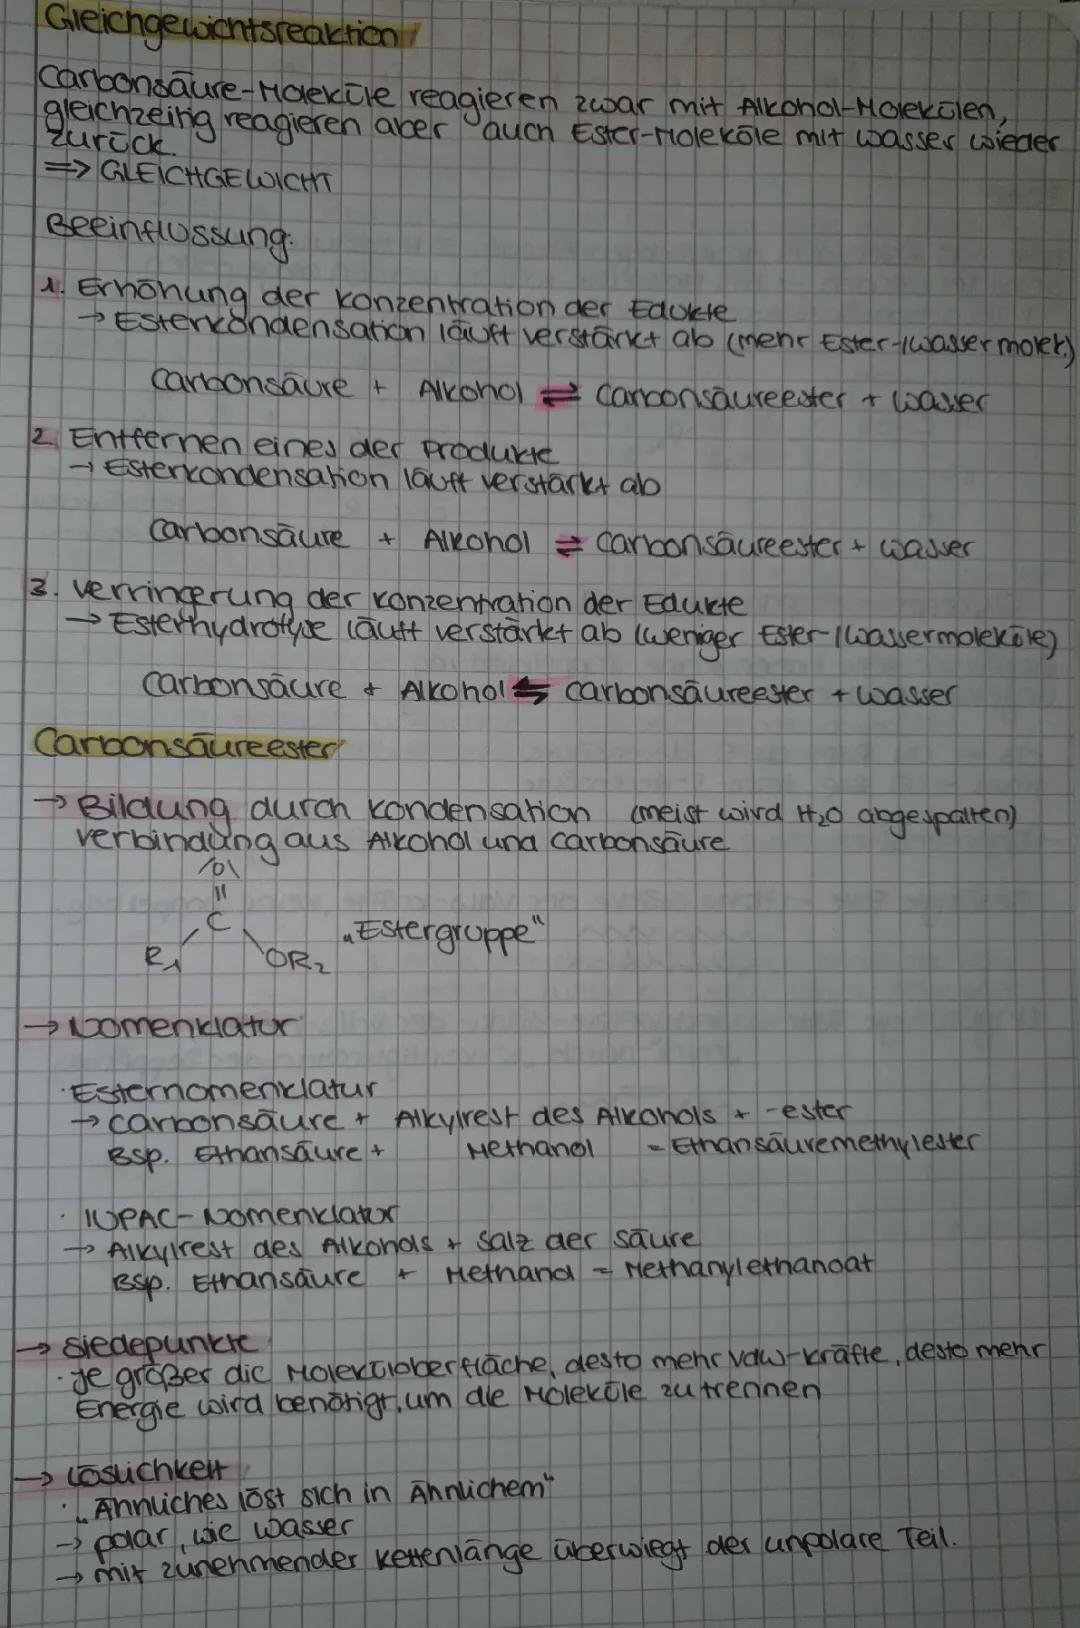 Gleichgewichtsreaktion
Carbonsäure-Moleküle reagieren zwar mit Alkohol-Molekülen,
gleichzeitig reagieren aber auch Ester-Moleküle mit Wasser wieder
zurück.
=> GLEICHGEWICHT
Beeinflussung:
1. Erhöhung der Konzentration der Edukte
→ Esterkondensation läuft verstärkt ab (mehr Ester-/Wassermolek.)
Carbonsäure + Alkohol ⇌ Carbonsäureester + Wasser
2. Entfernen eines der Produkte
→ Esterkondensation läuft verstärkt ab
Carbonsäure + Alkohol ⇌ Carbonsäureester + Wasser
3. Verringerung der Konzentration der Edukte
→ Esterhydrolyse läuft verstärkt ab (weniger Ester-/Wassermoleküle)
Carbonsäure + Alkohol ⇆ Carbonsäureester + Wasser
Carbonsäureester
→ Bildung durch Kondensation (meist wird H₂O abgespalten)
Verbindung aus Alkohol und Carbonsäure
|O|
||
C
„Estergruppe"
R₁ OR₂
→ Nomenklatur
· Esternomenklatur
→ Carbonsäure + Alkylrest des Alkohols + -ester
Bsp. Ethansäure + Methanol = Ethansäuremethylester
· IUPAC-Nomenklatur
→ Alkylrest des Alkohols + Salz der Säure
Bsp. Ethansäure + Methanol = Methanylethanoat
→ Siedepunkte
· Je größer die Moleküloberfläche, desto mehr VdW-Kräfte, desto mehr
Energie wird benötigt, um die Moleküle zu trennen
→ Löslichkeit
· „Ähnliches löst sich in Ähnlichem"
→ polar, wie Wasser
→ mit zunehmender Kettenlänge überwiegt der unpolare Teil.